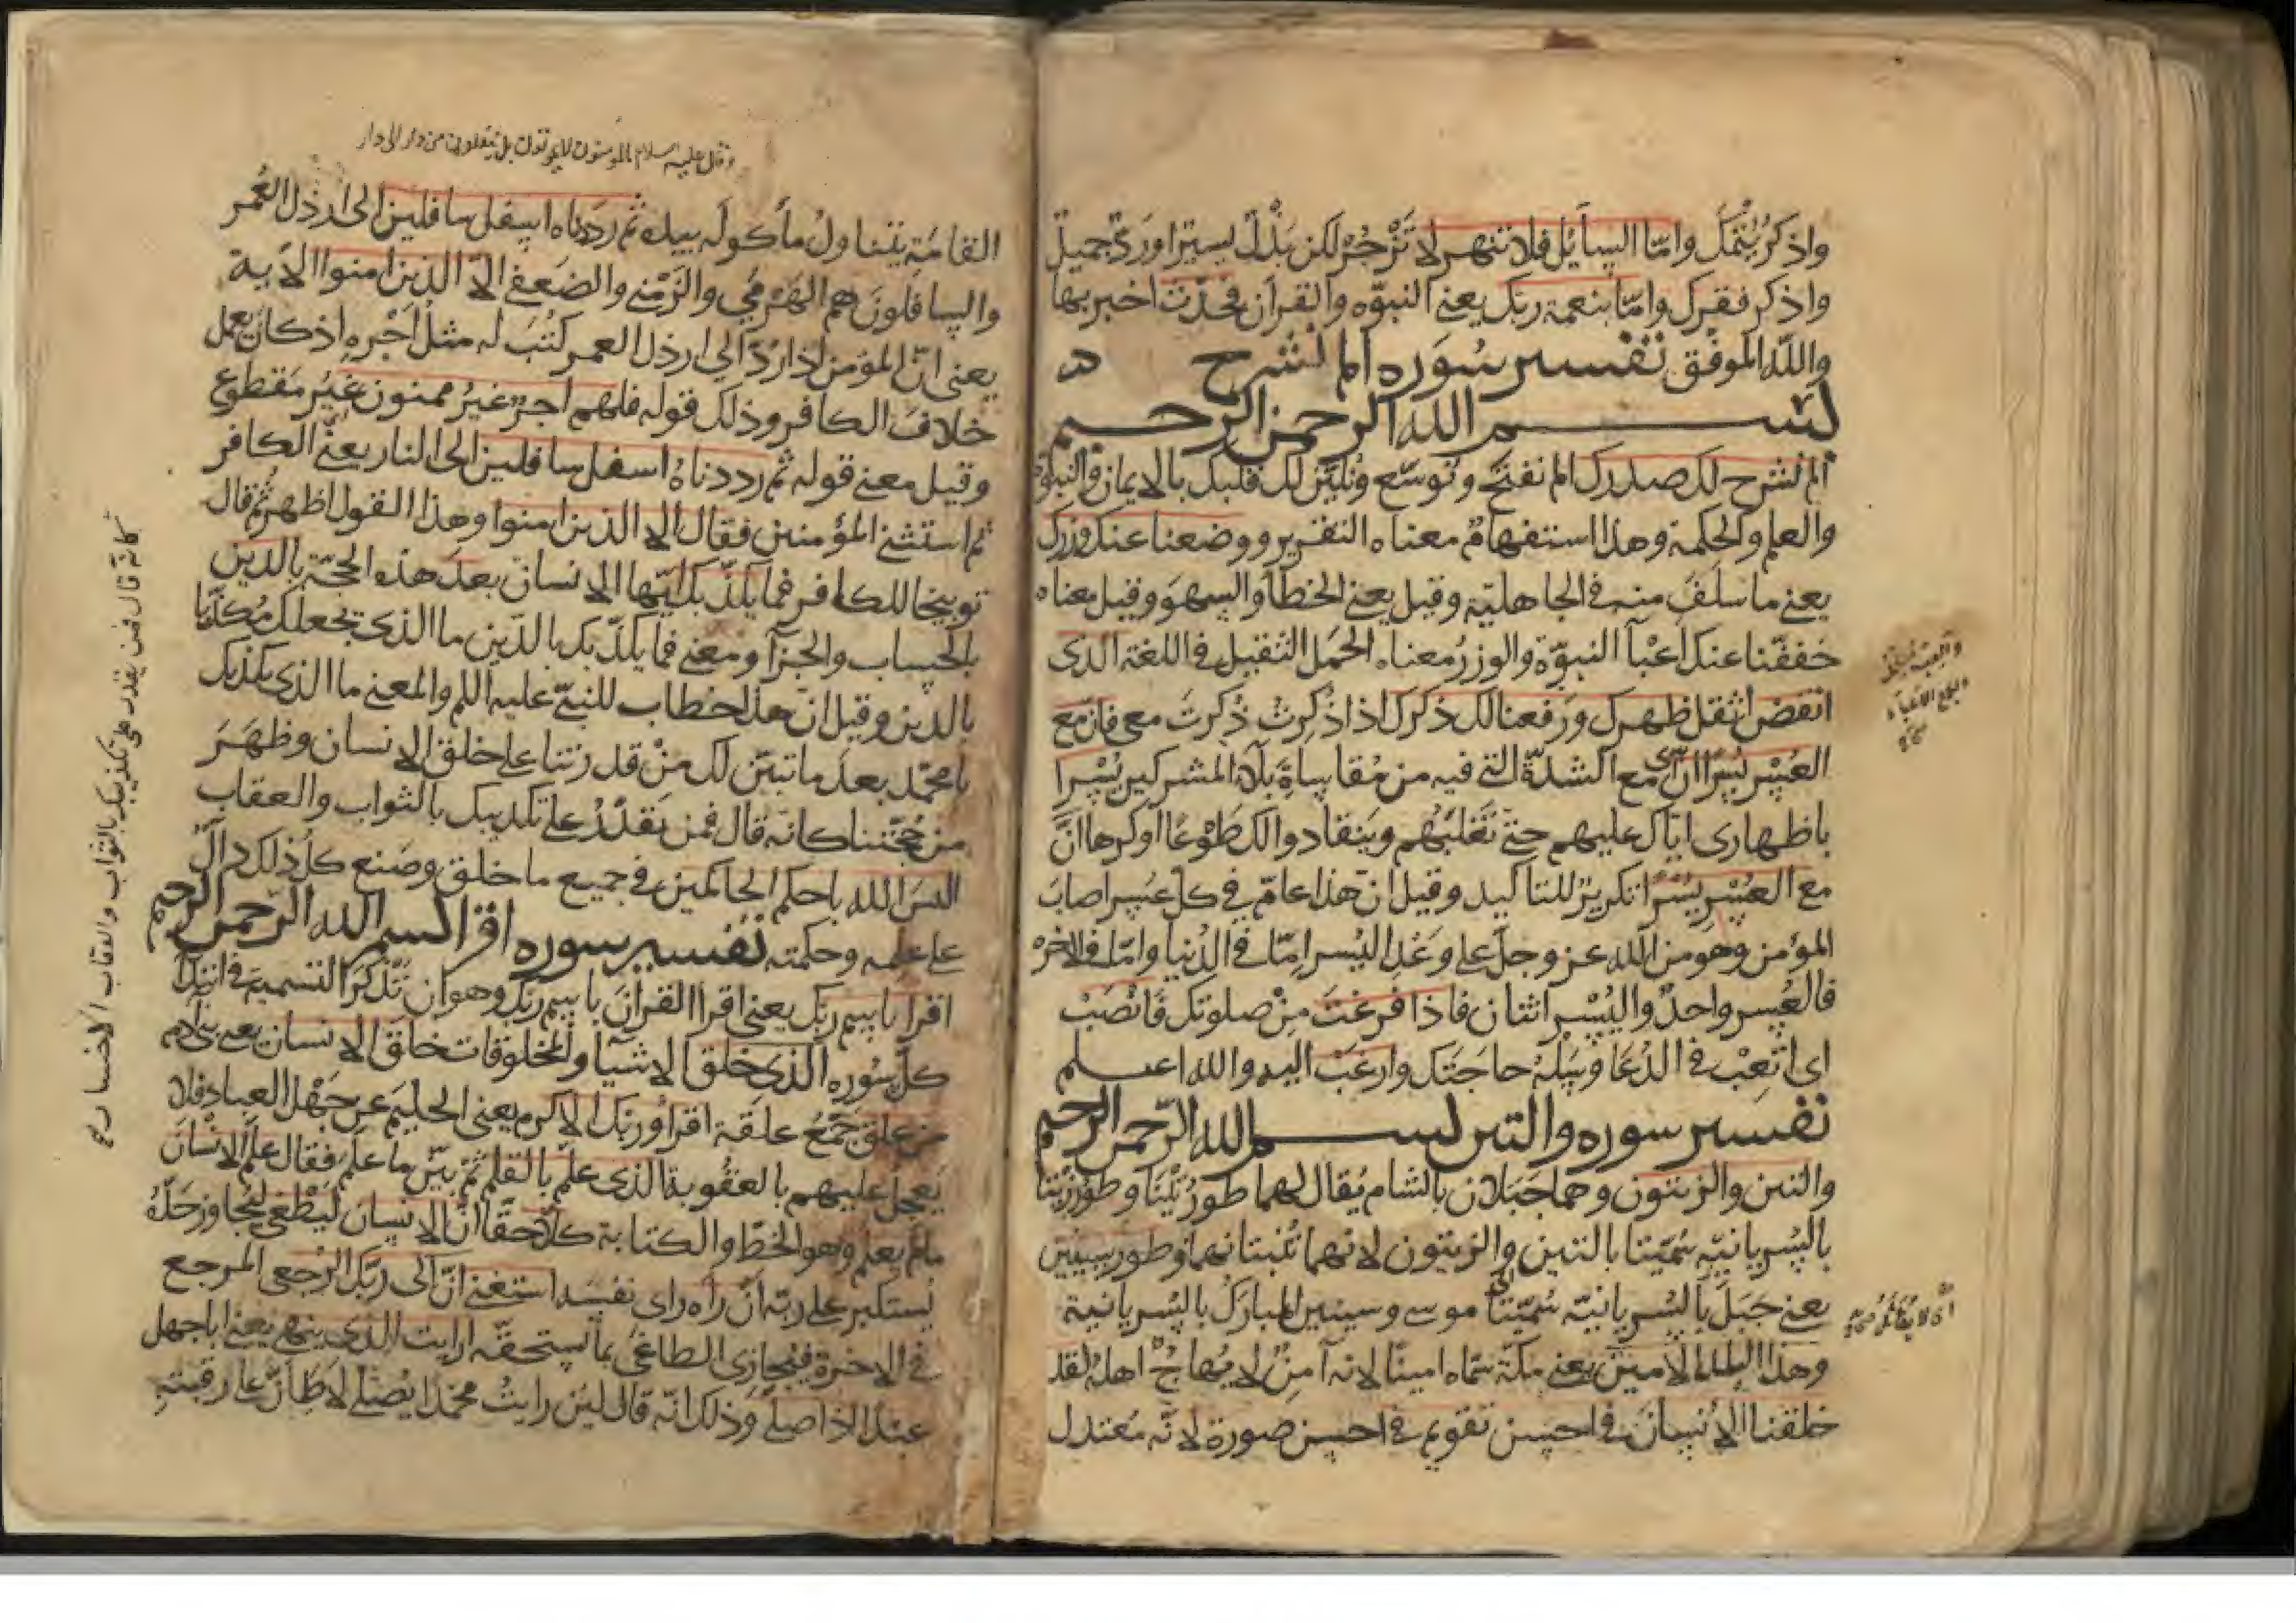 واذكر يُتْمَك وامّا السائل فلا تنهر لا تَزْجُرْ لكن بَذْلٌ يسيرٌ او ردٌّ جميلٌ
واذكر فقرك وامّا بنعمة ربّك يعني النبوّه والقرآن فحدّث اخبر بها
والله الموفق تفسير سُوَره الم نشرح
بسم الله الرحمن الرحيم
الم نشرح لك صدرك الم نفتح ونوسّع ونُليّن لك قلبك بالايمان والنبوّة
والعلم والحكمة وهذا استفهامٌ معناه التقرير ووضعنا عنك وزرك
يعني ما سَلَفَ منه في الجاهليّة وقيل يعني الخطأ والسهو وقيل معناه
خففّنا عنك اعبآ النبوّة والوزرُ معناه الحمل الثقيل في اللغة الذى
انقض أثقل ظهرك ورفعنا لك ذكرك اذا ذُكِرتُ ذُكرتَ معى فان مع
العُسْر يُسرًا اى انّ مع الشدّة التى فيه من مُقاساةِ بلآء المشركين يُسْرا
باظهارى ايّاك عليهم حتى تَغلبَهُم وينقادوا لك طَوْعًا او كرها انَّ
مع العُسْرِ يُسْرًا تكريرٌ للتأكيد وقيل انّ هذا عامّ في كل عسرٍ اصابَ
المؤمن وهو من الله عز وجلّ على وَعْدِ اليُسر امّا في الدُنيا وامّا في الاخره
فالعُسر واحدٌ واليُسْر اثنان فاذا فَرغتَ مِنْ صلوتك فَانْصَبْ
اى اتْعِبْ في الدُعَا وسَلْهُ حاجَتَك وارغَبْ اليه والله اعلم
تفسير سوره والتين بسم الله الرّحمن الرحيم
والتين والزيتون وهما جَبَلان بالشام يُقال لهما طورُ تَيْنَا وطورُ زَيْتا
بالسُريانيّه سُمّيتا بالتين والزيتون لانهما تُنبتانهما وطور سينين
يعني جَبَلَ بالسُريانيّه سُمّيتا موسى وسينين المباركُ بالسُريانية
وهذا البلد الامين يعني مكّة سمّاه امينًا لانه آمِنٌ لا يُهاجُ اهلُه لقد
خلقنا الاُنسانَ في احسن تقويم في احسن صورة لانّه مُعتدل
اى لا يُقاتل
وقال عليه السلام المؤمنون لا يموتون بل ينقلون من دار الى دار
القامَةِ يتناولُ مأكولَه بيده ثم رددناه اسفل سافلين الى ارذل العُمر
والسافلونَ هم الهَرْمَى والزَمْنى والضعفى الّا الذين امنوا الاية
يعنى انّ المؤمن اذا رُدّ الى ارذل العمر كُتبَ له مثلُ أَجْره اذ كان يعمل
خلافَ الكافر وذلك قوله فلهم اجرٌ غيرُ ممنون غيرُ مَقطوع
وقيل معنى قوله ثم رددناهُ اسفل سافلين الى النار يعنى الكافر
ثم استثنى المؤمنين فقال الا الذين امنوا وهذا القول اظهر ثم قال
توبيخا للكافر فما يُكذّبك ايّها الانسان بعدَ هذه الحجّة بالدين
بالحِساب والجزآ ومعنى فما يكذّبك بالدّين ما الذى تجعلك مُكذّبا
بالدين وقيل ان هذا خطاب للنبىّ عليه السلم والمعنى ما الذى يكذبك
يا محمّد بعدَ ما تبيّن لك مِنْ قدرتنا على خلق الانسان وظهرَ
من حُجّتنا كانّه قال فمن يَقدِرُ على تكذيبك بالثواب والعقاب
اليسَ الله باحكم الحاكمين في جميع ما خلق وصنع كلُ ذلك دالٌّ
على علمه وحكمته تفسير سوره اقرا بسم الله الرّحمن الرحيم
اقرا باسم ربّك يعنى اقرا القرانَ باسم ربّك وهو ان تذكرَ التسميةَ في ابتدآ
كلّ سُوره الذى خلق الاشيآ والمخلوقات خلق الانسان يعنى بنى آدم
من علق جَمعُ علقة اقرأ وربّك الاكرم يعنى الحليم عن جَهْل العباد فلا
يَعجل عليهم بالعقُوبة الذى علّم بالقلم ثمّ بيّن ما علّم فقال علّم الانسانَ
مالم يعلم وهو الخَطُّ والكتابة كلا حقّا انّ الانسان ليَطغى ليتجاوز حَدّهُ
يَستكبر على ربّه انْ رآه راى نفسَه استغنى انّ الى ربّك الرُجعى المرجع
في الاخرة فيُجازى الطاغى بما يستحقّه ارايت الذى ينهى يعنى ابا جهل
عبدًا اذا صلّى وذلك انّه قال لئن رايتُ محمّدًا يُصلّى لاَطأنّ على رقبته
كانه قال فمن يقدر على تكذيبك بالثواب والعقاب الا خسار